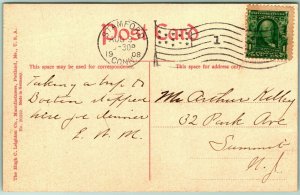 Post Card
STAMFORD
30P
1908
CONN.
1
This space may be used for correspondence.
This space is for address only.
Taking a trip to
Boston stopped
here for dinner
E. N. M.
Mr Arthur Kelley
32 Park Ave
Summit
N. J.
The Hugh C. Leighton Co., Manufacturers, Portland, Me., U. S. A.